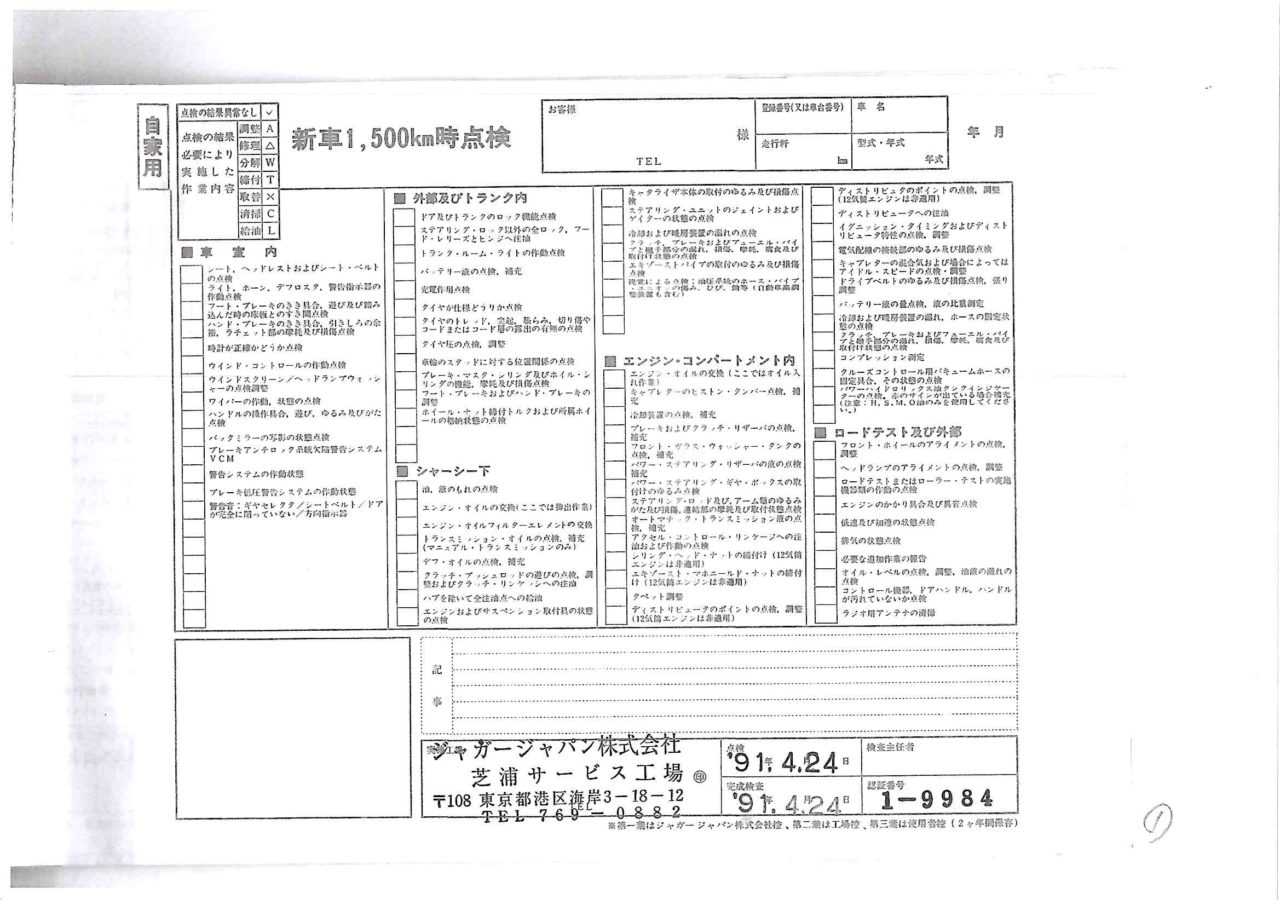 自家用
点検の結果異常なし ✓
点検の結果必要により実施した作業内容
調整 A
修理 △
分解 W
締付 T
取替 ×
清掃 C
給油 L
新車1,500km時点検
お客様
様
TEL
登録番号(又は車台番号)
車名
走行粁
km
型式・年式
年式
年 月
■ 車室内
シート、ヘッドレストおよびシート・ベルトの点検
ライト、ホーン、デフロスタ、警告指示器の作動点検
フート・ブレーキのきき具合、遊び及び踏み込んだ時の床板とのすき間点検
ハンド・ブレーキのきき具合、引きしろの余裕、ラチェット部の摩耗及び損傷点検
時計が正確かどうか点検
ウインド・コントロールの作動点検
ウインドスクリーン/ヘッドランプウォッシャーの点検調整
ワイパーの作動、状態の点検
ハンドルの操作具合、遊び、ゆるみ及びがた点検
バックミラーの写影の状態点検
ブレーキアンチロック系統欠陥警告システムVCM
警告システムの作動状態
ブレーキ低圧警告システムの作動状態
警告音:ギヤセレクタ/シートベルト/ドアが完全に閉っていない/方向指示器
■ 外部及びトランク内
ドア及びトランクのロック機能点検
ステアリング・ロック以外の全ロック、フード・レリーズとヒンジへ注油
トランク・ルーム・ライトの作動点検
バッテリー液の点検、補充
充電作用点検
タイヤが仕様どうりか点検
タイヤのトレッド、突起、膨らみ、切り傷やコードまたはコード層の露出の有無の点検
タイヤ圧の点検、調整
車輪のスタッドに対する位置関係の点検
ブレーキ・マスタ・シリング及びホイル・シリングの機能、摩耗及び損傷点検
フート・ブレーキおよびハンド・ブレーキの調整
ホイール・ナット締付トルクおよび所属ホイールの格納状態の点検
■ シャーシー下
油、液のもれの点検
エンジン・オイルの交換(ここでは排出作業)
エンジン・オイルフィルターエレメントの交換
トランスミッション・オイルの点検、補充(マニュアル・トランスミッションのみ)
デフ・オイルの点検、補充
クラッチ・プッシュロッドの遊びの点検、調整およびクラッチ・リンケーシへの注油
ハブを除いて全注油点への給油
エンジンおよびサスペンション取付具の状態の点検
キャタライザ本体の取付のゆるみ及び損傷点検
ステアリング・ユニットのジョイントおよびゲイターの状態の点検
冷却および暖房装置の漏れの点検
クラッチ、ブレーキおよびフューエル・パイプと継手部分の漏れ、損傷、摩耗、腐食及び取付け状態の点検
エキゾーストパイプの取付のゆるみ及び損傷点検
視覚による点検:油圧系統のホース・パイプ・ユニオンの傷み、ひび、錆等(自動車高調整装置も含む)
■ エンジン・コンパートメント内
エンジン・オイルの交換(ここではオイル入れ作業)
キャブレターのピストン・ダンパー点検、補充
冷却装置の点検、補充
ブレーキおよびクラッチ・リザーバの点検、補充
フロント・ガラス・ウォッシャー・タンクの点検、補充
パワー・ステアリング・リザーバの液の点検補充
パワー・ステアリング・ギヤ・ボックスの取付けのゆるみ点検
ステアリング・ロッド及び、アーム類のゆるみがた及び損傷、連結部の摩耗及び取付状態点検
オートマチック・トランスミッション液の点検、補充
アクセル・コントロール・リンケージへの注油および作動の点検
シリング・ヘッド・ナットの締付け(12気筒エンジンは非適用)
エキゾースト・マホニールド・ナットの締付け(12気筒エンジンは非適用)
タペット調整
ディストリビュータのポイントの点検、調整(12気筒エンジンは非適用)
ディストリビュタのポイントの点検、調整(12気筒エンジンは非適用)
ディストリビュータへの注油
イグニッション・タイミングおよびディストリビュータ特性の点検、調整
電気配線の接続部のゆるみ及び損傷点検
キャブレターの混合気および場合によってはアイドル・スピードの点検・調整
ドライブベルトのゆるみ及び損傷点検、張り調整
バッテリー液の量点検、液の比重測定
冷却および暖房装置の漏れ、ホースの固定状態の点検
クラッチ、ブレーキおよびフューエル・パイプと継手部分の漏れ、損傷、摩耗、腐食及び取付け状態の点検
コンプレッション測定
クルーズコントロール用バキュームホースの固定具合、その状態の点検
パワーハイドロリックス油タンクインジケーターの点検、赤のサインが出ている場合補充(注意:H.S.M.O油のみを使用してください。)
■ ロードテスト及び外部
フロント・ホイールのアライメントの点検、調整
ヘッドランプのアライメントの点検、調整
ロードテストまたはローラー・テストの実施機器類の作動の点検
エンジンのかかり具合及び異音点検
低速及び加速の状態点検
排気の状態点検
必要な追加作業の報告
オイル・レベルの点検、調整、油液の漏れの点検
コントロール機器、ドアハンドル、ハンドルが汚れていないか点検
ラジオ用アンテナの清掃
記事
ジャガージャパン株式会社
芝浦サービス工場 ㊞
〒108 東京都港区海岸3-18-12
TEL 769-0882
点検
'91年 4月24日
検査主任者
完成検査
'91年 4月24日
認証番号
1-9984
※第一葉はジャガージャパン株式会社控、第二葉は工場控、第三葉は使用者控(2ヶ年間保容)
①